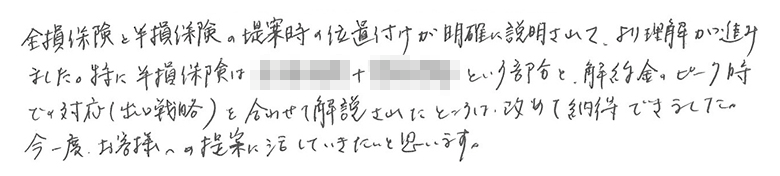 全損保険と半損保険の提案時の位置付けが明確に説明されて、より理解が進み
ました。特に半損保険は + という部分と、解約金のピーク時
での対応(出口戦略)を合わせて解説されたところは、改めて納得できました。
今一度、お客様への提案に活していきたいと思います。